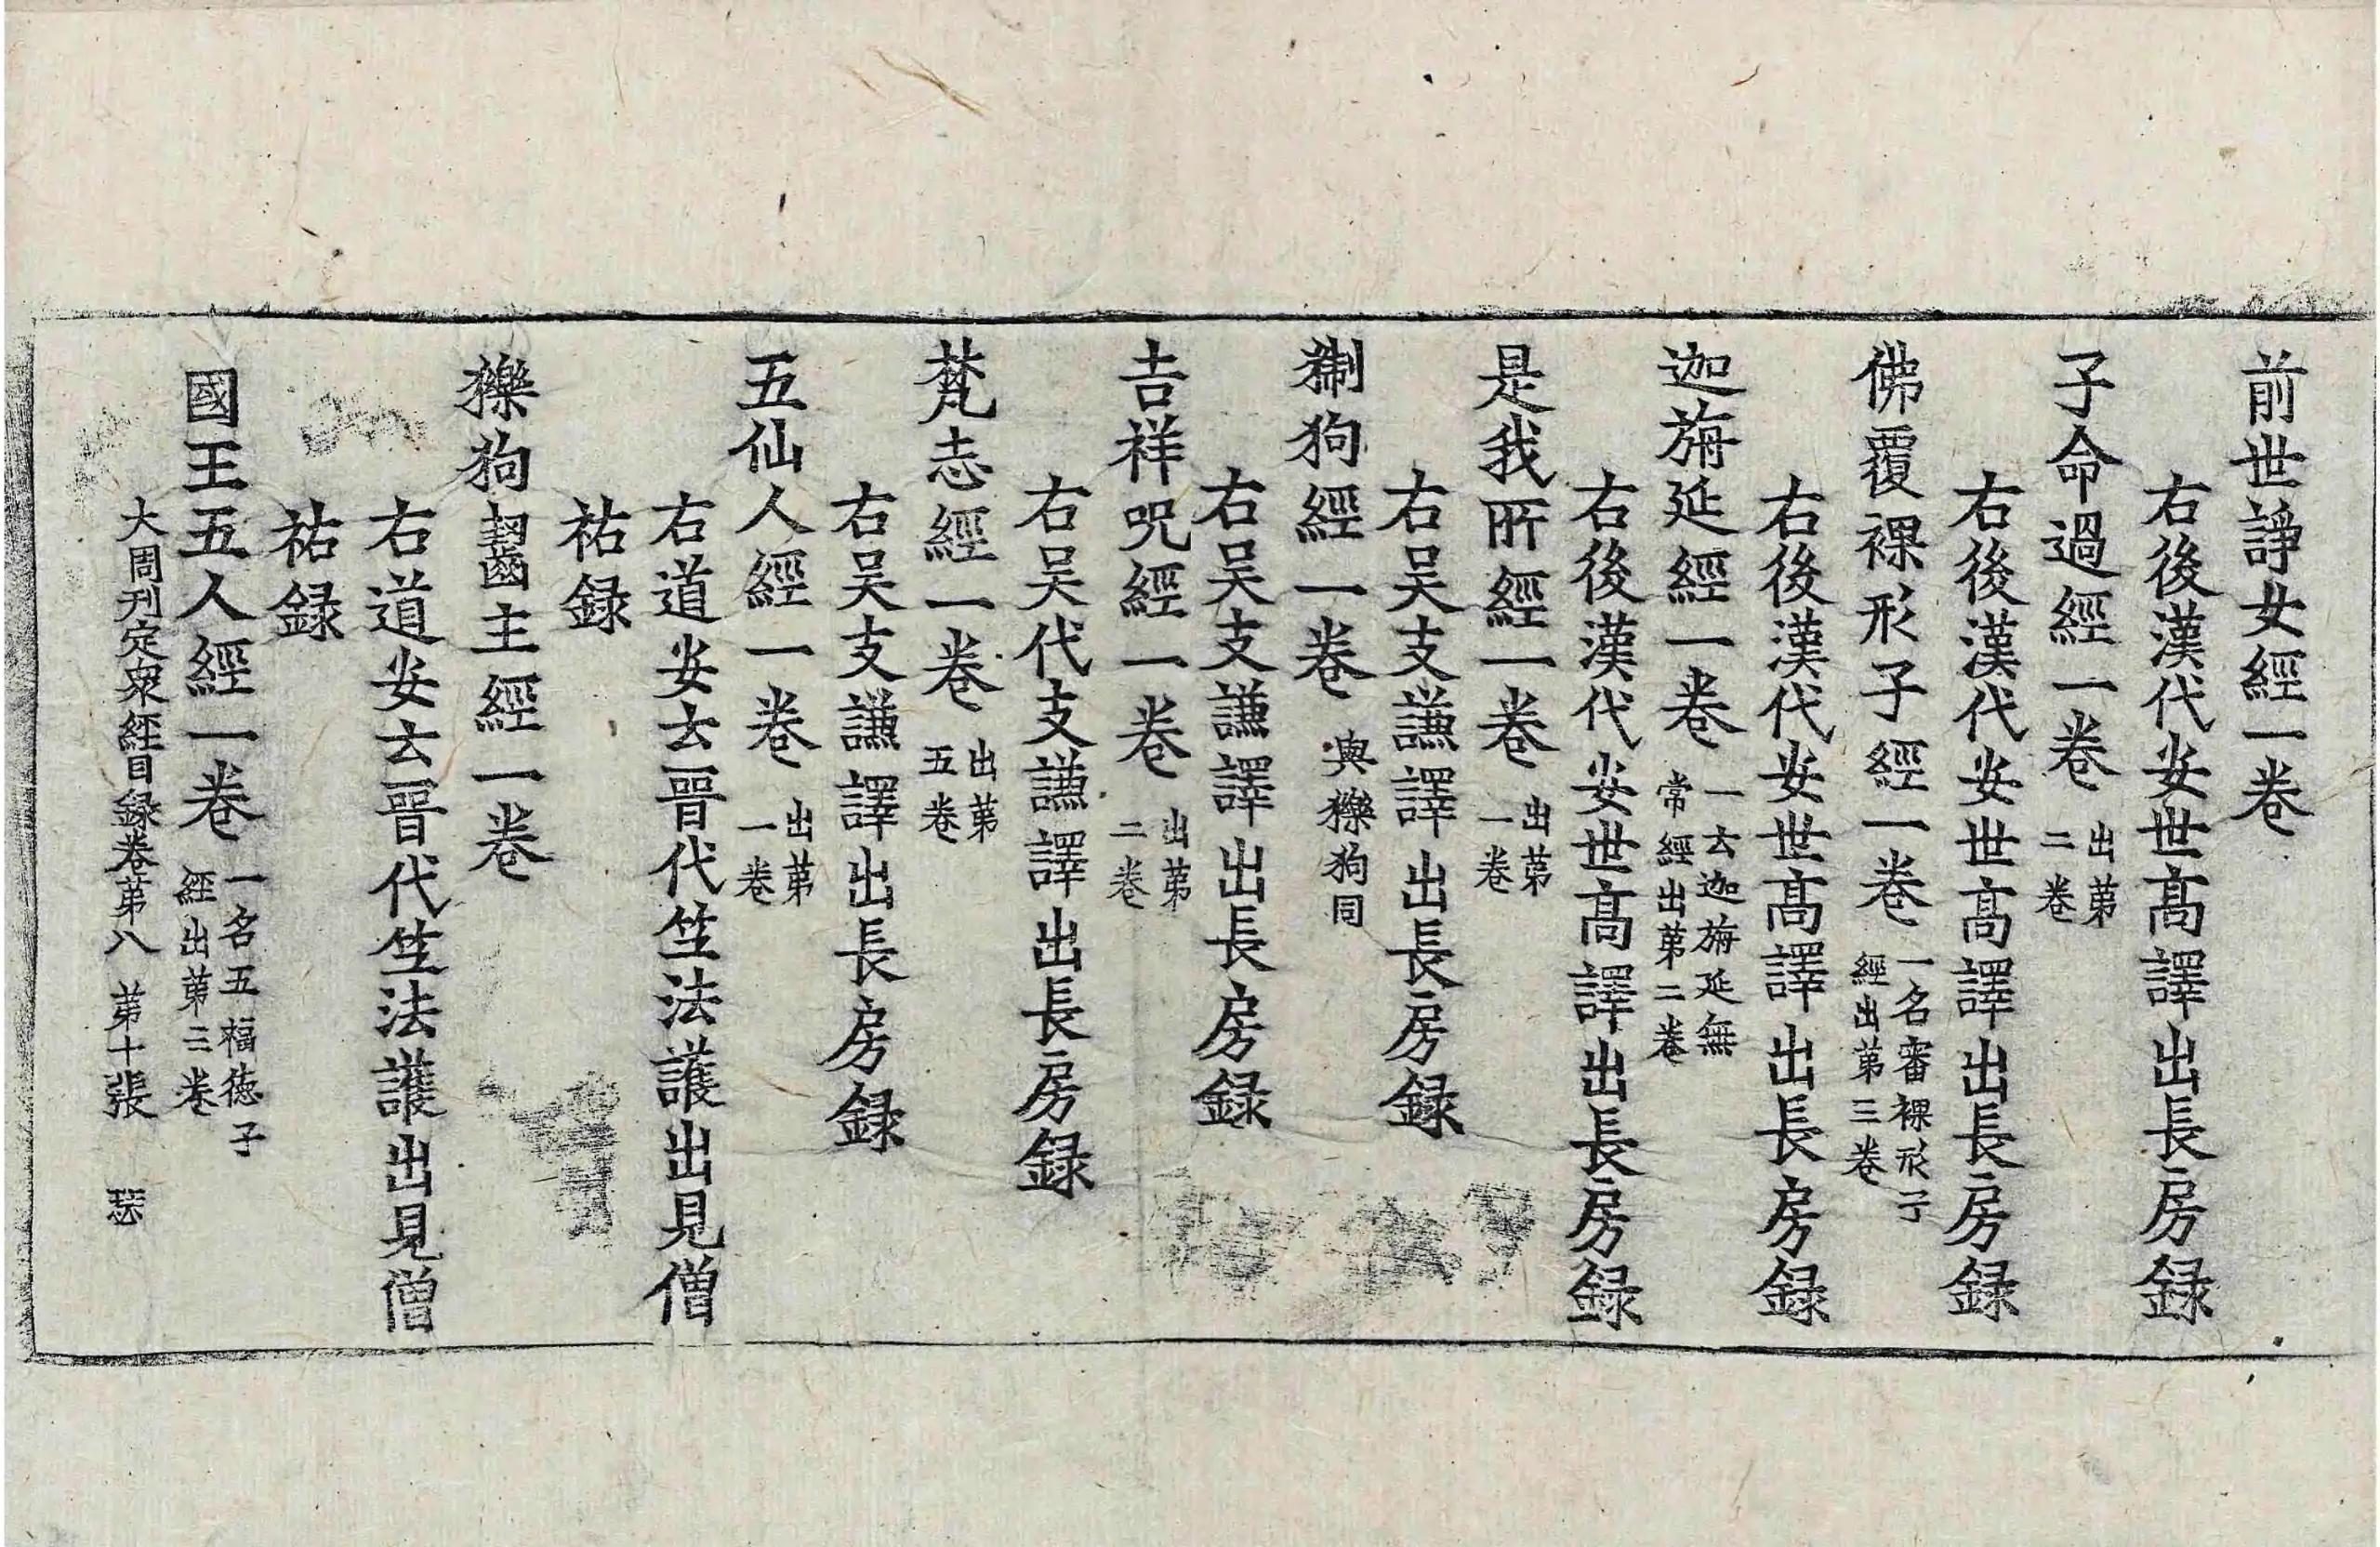 前世諍女經一卷
右後漢代安世高譯出長房録
子命過經一卷 出苐二卷
右後漢代安世高譯出長房録
佛覆裸形子經一卷 一名審裸形子經出苐三卷
右後漢代安世高譯出長房録
迦旃延經一卷 一云迦旃延無常經出苐二卷
右後漢代安世高譯出長房録
是我所經一卷 出苐一卷
右吴支謙譯出長房録
猘狗經一卷 與㹸狗同
右吴支謙譯出長房録
吉祥呪經一卷 出苐二卷
右吴代支謙譯出長房録
梵志經一卷 出苐五卷
右吴支謙譯出長房録
五仙人經一卷 出苐一卷
右道安云晉代竺法護出見僧
祐録
㹸狗齧主經一卷
右道安云晉代竺法護出見僧
祐録
國王五人經一卷 一名五福德子經出苐二卷
大周刊定衆經目録卷苐八 苐十張